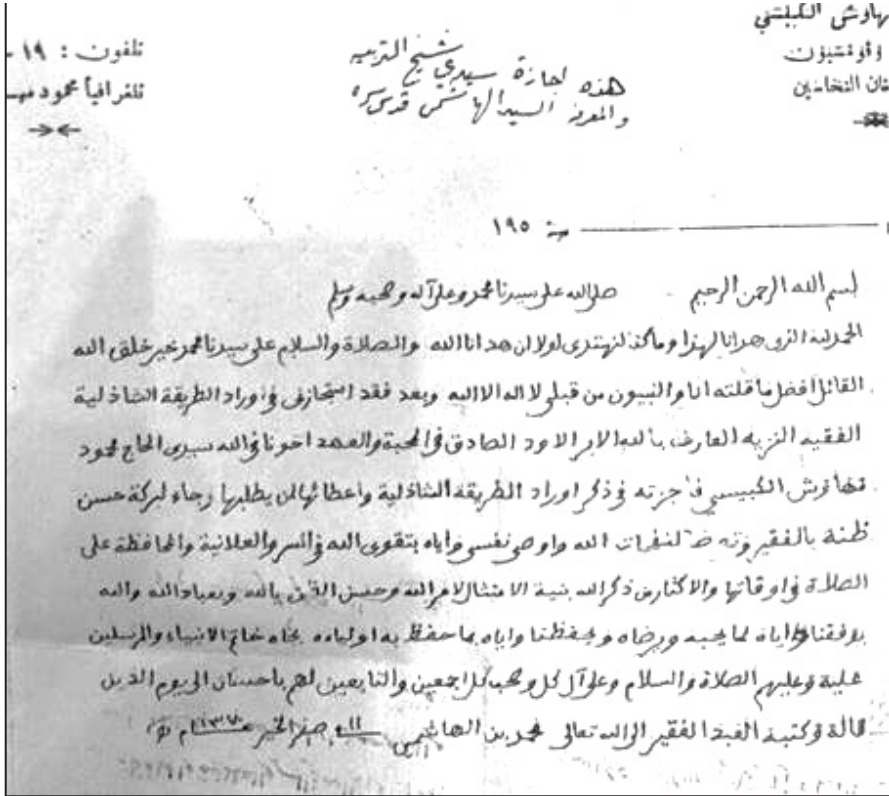 مهاوش الكبيسي
وقومسيون
خان النحاسين
هذه اجازة سيدي شيخ التربيه
والمعرفة السيد الهاشمي قدس سره
تلفون : ١٩
تلغرافياً محمود مه
سنة ١٩٥
بسم الله الرحمن الرحيم صلى الله على سيدنا محمد وعلى آله وصحبه وسلم
الحمد لله الذى هدانا لهذا وما كنا لنهتدى لولا ان هدانا الله والصلاة والسلام على سيدنا محمد خير خلق الله
القائل أفضل ما قلته انا والنبيون من قبلى لا اله الا الله وبعد فقد استجازنى في أوراد الطريقة الشاذلية
الفقيه النزيه العارف بالله الابر الاود الصادق في المحبة والعهد اخونا في الله سيدى الحاج محمود
مهاوش الكبيسي فأجزته في ذكر اوراد الطريقة الشاذلية واعطائها لمن يطلبها رجاء لبركة حسن
ظنه بالفقير لنفحات الله واوصى نفسى واياه بتقوى الله في السر والعلانية والمحافظة على
الصلاة في اوقاتها والاكثار من ذكر الله بنية الامتثال لامر الله وحسن الظن بالله وبعباد الله والله
يوفقنا واياه لما يحبه ويرضاه ويحفظنا واياه بما حفظ به اولياءه بجاه خاتم الانبياء والمرسلين
عليه وعليهم الصلاة والسلام وعلى آل كل وصحب كل اجمعين والتابعين لهم باحسان الى يوم الدين
قاله وكتبه العبد الفقير الى الله تعالى محمد بن الهاشمي ١١ صفر الخير ١٣٧٠